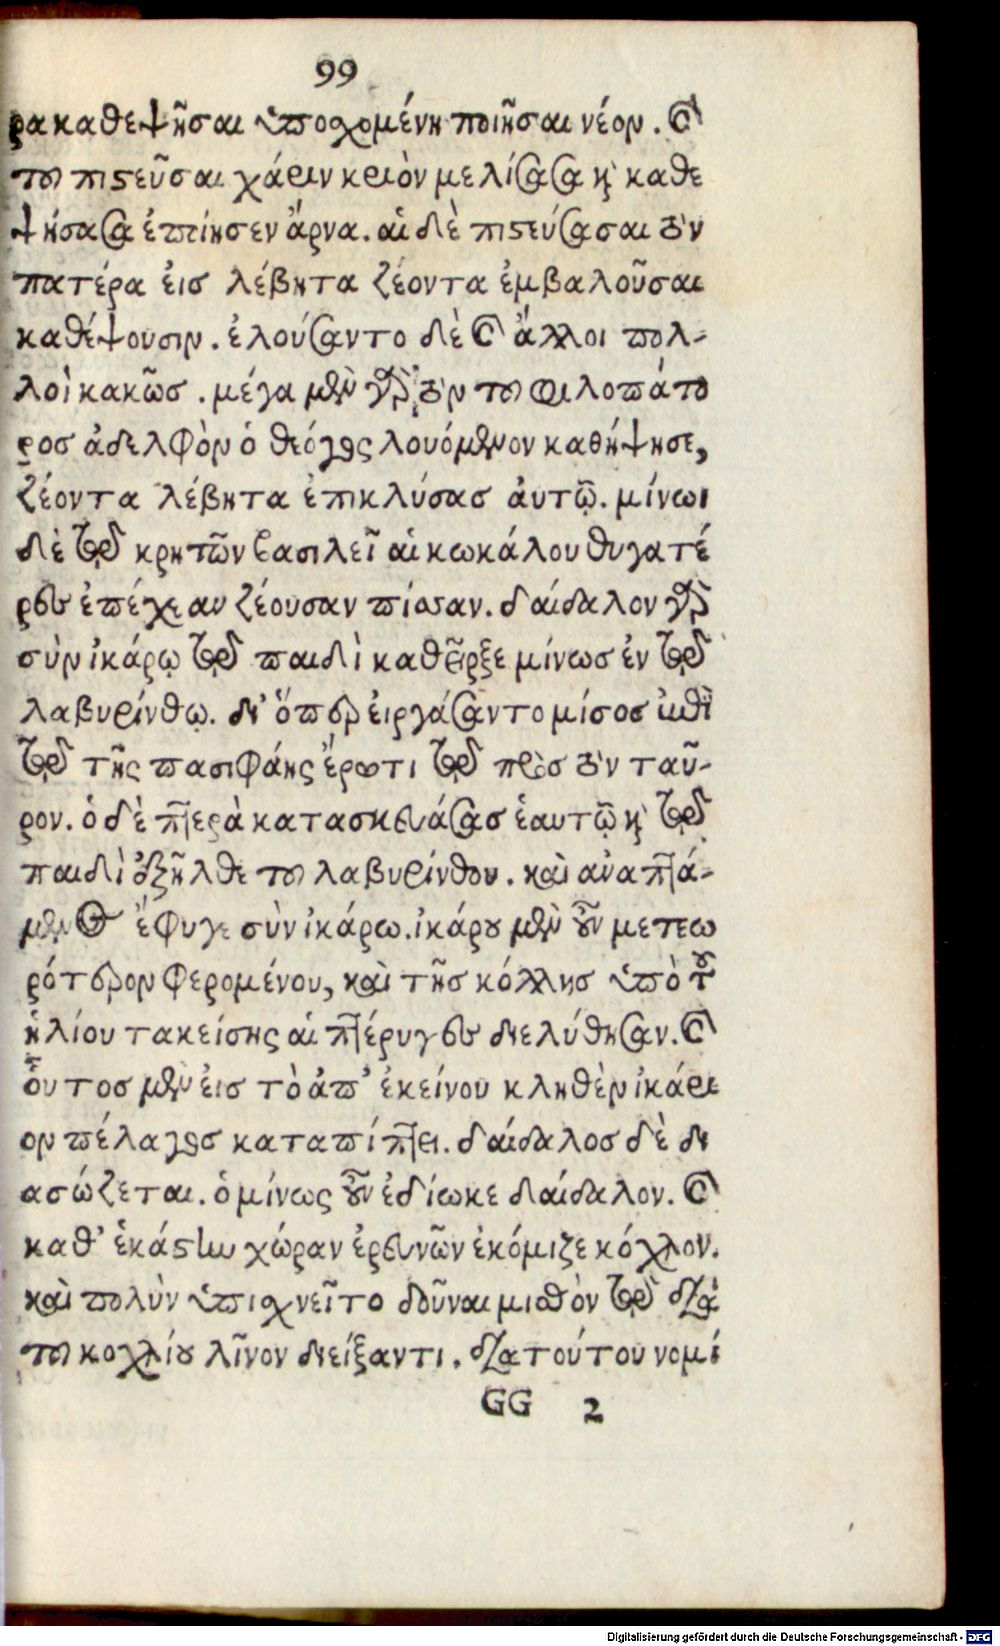 99
ρα καθεψῆσαι ὑποσχομένη ποιῆσαι νέον. καὶ
τοῦ πιστεῦσαι χάριν κριὸν μελίσασα καὶ καθε
ψήσασα ἐποίησεν ἄρνα. αἱ δὲ πιστεύσασαι τὸν
πατέρα εἰς λέβητα ζέοντα ἐμβαλοῦσαι
καθέψουσιν. ἐλούσαντο δὲ καὶ ἄλλοι πολ-
λοὶ κακῶς. μέγα μὲν γὰρ τὸν τοῦ φιλοπάτο
ρος ἀδελφὸν ὁ θεόγος λουόμενον καθήψησε,
ζέοντα λέβητα ἐπικλύσας ἀυτῷ. μίνωι
δὲ τῷ κρητῶν βασιλεῖ αἱ κωκάλου θυγατέ
ρες ἐπέχεαν ζέουσαν πίσσαν. δαίδαλον γὰρ
σὺν ἰκάρῳ τῷ παιδὶ καθεῖρξε μίνως ἐν τῷ
λαβυρίνθῳ. δι' ὅπερ ἐιργάσαντο μίσος ἐπὶ
τῷ τῆς πασιφάης ἔρωτι τῷ πρὸς τὸν ταῦ-
ρον. ὁ δὲ πτερὰ κατασκευάσας ἑαυτῷ καὶ τῷ
παιδὶ ἐξῆλθε τοῦ λαβυρίνθου. καὶ ἀναπτά-
μενος ἔφυγε σὺν ἰκάρω. ἰκάρου μὲν οὖν μετεω
ρότερον φερομένου, καὶ τῆς κόλλης ὑπὸ τοῦ
ἡλίου τακείσης αἱ πτέρυγες διελύθησαν. καὶ
οὗτος μὲν εἰς τὸ ἀπ' ἐκείνου κληθὲν ἰκάρι
ον πέλαγος καταπίπτει. δαίδαλος δὲ δι
ασώζεται. ὁ μίνως οὖν ἐδίωκε δαίδαλον. καὶ
καθ' ἑκάστην χώραν ἐρευνῶν ἐκόμιζε κόχλον.
καὶ πολὺν ὑπισχνεῖτο δοῦναι μισθὸν τῷ διὰ
τοῦ κοχλίου λῖνον διείξαντι. διὰ τούτου νομί
GG 2
Digitalisierung gefördert durch die Deutsche Forschungsgemeinschaft - DFG